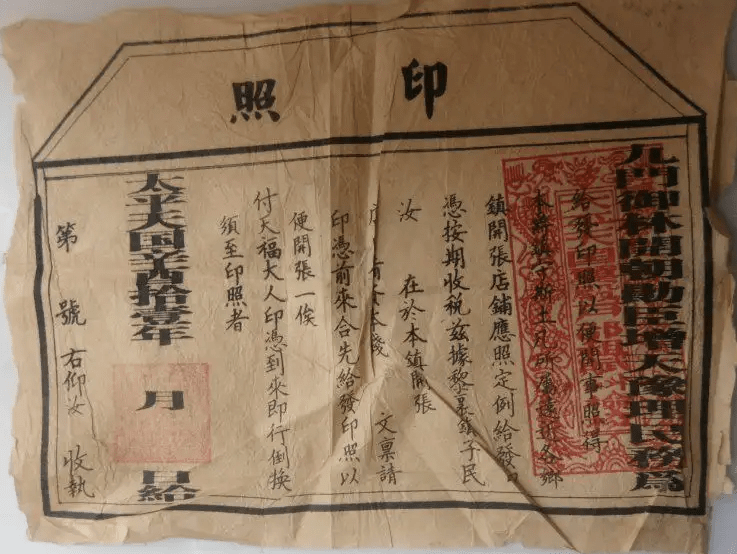 印照
九門御林開朝勳臣 天 理民務為
給發印照以便開事照得
本 鎮守斯土凡所屬遠近各鄉
鎮開張店鋪應照定例給發
憑按期收稅茲據黎 鎮子民
汝 在於本鎮開張
本 文稟請
印憑前來合先給發印照以
便開張一俟
付天福大人印憑到來即行倒換
須至印照者
太平天国辛酉拾壹年 月 日給
第 號 右仰汝 收執